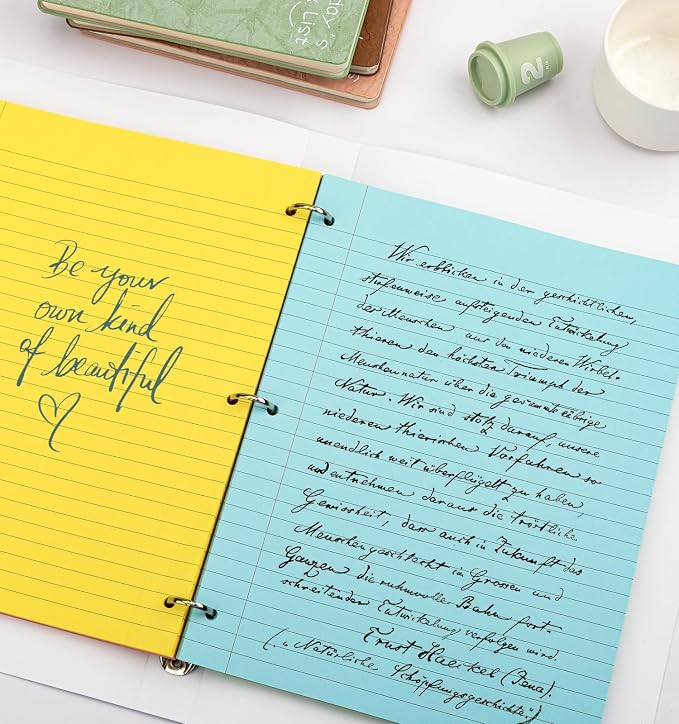 day's
List
2
Be your
own kind
of beautiful
Wir erblicken in der geschichtlichen,
stufenweise aufsteigenden Entwickelung
der Menschen aus den niederen Wirbel-
thieren den höchsten Triumph der
Menschennatur über die gesammte übrige
Natur. Wir sind stolz darauf, unsere
niederen thierischen Vorfahren so
unendlich weit überflügelt zu haben,
und entnehmen daraus die tröstliche
Gewissheit, dass auch in Zukunft das
Menschengeschlecht im Grossen und
Ganzen die ruhmvolle Bahn fort-
schreitender Entwickelung verfolgen wird.
Ernst Haeckel (Jena).
(„Natürliche Schöpfungsgeschichte“)